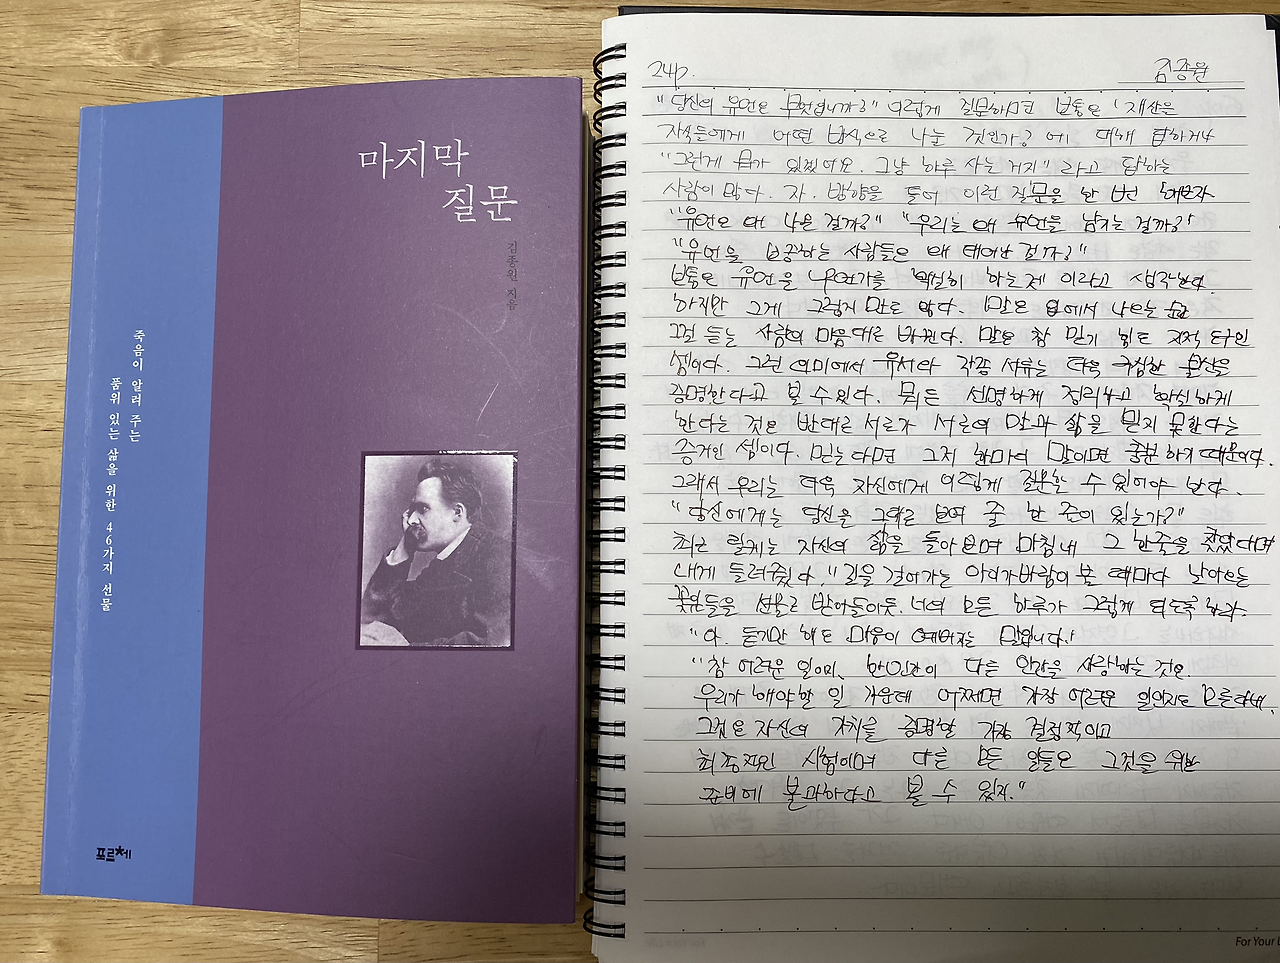 마지막
질문
김종원 지음
죽음이 알려 주는
품위 있는 삶을 위한 46가지 선물
프르체
24p.
김종원
"당신의 유언은 무엇입니까?" 이렇게 질문하면 보통은 '재산을
자식들에게 어떤 방식으로 나눌 것인가?에 대해 답하거나
"그런게 뭐가 있겠어요. 그냥 하루 사는 거지" 라고 답하는
사람이 많다. 자. 방향을 틀어 이런 질문을 한 번 해보자
"유언은 왜 나온 걸까?" "우리는 왜 유언을 남기는 걸까?"
"유언을 보증하는 사람들은 왜 태어난 걸까?"
보통은 유언을 무언가를 확실히 하는 게 이라고 생각한다.
하지만 그게 그렇지 만도 않다. 말은 입에서 나오는 순간
그걸 듣는 사람의 마음대로 바뀐다. 말은 참 믿기 힘든 지적 도구인
셈이다. 그런 의미에서 유서와 각종 서류는 더욱 극심한 불신을
증명한다고 볼 수 있다. 뭐든 선명하게 정리하고 확실하게
한다는 것은 반대로 서로가 서로의 말과 삶을 믿지 못한다는
증거인 셈이다. 믿는다면 그저 한마디 말이면 충분하기 때문이다.
그래서 우리는 더욱 자신에게 이렇게 질문할 수 있어야 한다.
"당신에게는 당신을 그대로 보여 줄 한 줄이 있는가?"
최근 릴케는 자신의 삶을 돌아보며 마침내 그 한줄을 찾았다며
내게 들려주었다. "길을 걸어가는 아이가 바람이 불 때마다 날아오는
꽃잎들을 선물로 받아들이듯. 너의 모든 하루가 그렇게 되도록 하라.
"아. 듣기만 해도 마음이 예뻐지는 말입니다."
"참 어려운 일이며, 한 인간이 다른 인간을 사랑하는 것은.
우리가 해야할 일 가운데 어쩌면 가장 어려운 일인지도 모른다네.
그것은 자신의 가치를 증명할 가장 결정적이고
최종적인 시험이며 다른 모든 일들은 그것을 위한
준비에 불과하다고 볼 수 있지."
For Your